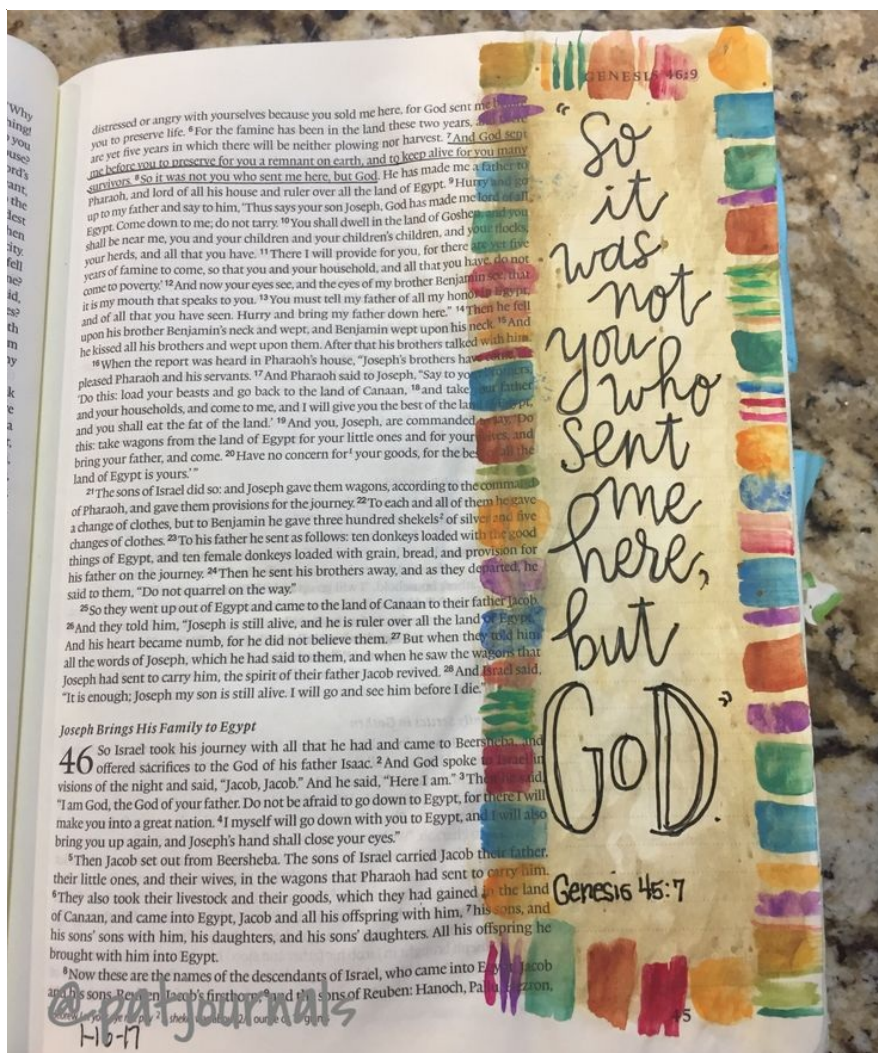 GENESIS 46:9
distressed or angry with yourselves because you sold me here, for God sent me before
you to preserve life. 6For the famine has been in the land these two years, and there
are yet five years in which there will be neither plowing nor harvest. 7And God sent
me before you to preserve for you a remnant on earth, and to keep alive for you many
survivors. 8So it was not you who sent me here, but God. He has made me a father to
Pharaoh, and lord of all his house and ruler over all the land of Egypt. 9Hurry and go
up to my father and say to him, ‘Thus says your son Joseph, God has made me lord of all
Egypt. Come down to me; do not tarry. 10You shall dwell in the land of Goshen, and you
shall be near me, you and your children and your children’s children, and your flocks,
your herds, and all that you have. 11There I will provide for you, for there are yet five
years of famine to come, so that you and your household, and all that you have, do not
come to poverty.’ 12And now your eyes see, and the eyes of my brother Benjamin see, that
it is my mouth that speaks to you. 13You must tell my father of all my honor in Egypt,
and of all that you have seen. Hurry and bring my father down here.” 14Then he fell
upon his brother Benjamin’s neck and wept, and Benjamin wept upon his neck. 15And
he kissed all his brothers and wept upon them. After that his brothers talked with him.
16When the report was heard in Pharaoh’s house, “Joseph’s brothers have come,” it
pleased Pharaoh and his servants. 17And Pharaoh said to Joseph, “Say to your brothers,
‘Do this: load your beasts and go back to the land of Canaan, 18and take your father
and your households, and come to me, and I will give you the best of the land of Egypt,
and you shall eat the fat of the land.’ 19And you, Joseph, are commanded to say, ‘Do
this: take wagons from the land of Egypt for your little ones and for your wives, and
bring your father, and come. 20Have no concern for1 your goods, for the best of all the
land of Egypt is yours.’”
21The sons of Israel did so: and Joseph gave them wagons, according to the command
of Pharaoh, and gave them provisions for the journey. 22To each and all of them he gave
a change of clothes, but to Benjamin he gave three hundred shekels2 of silver and five
changes of clothes. 23To his father he sent as follows: ten donkeys loaded with the good
things of Egypt, and ten female donkeys loaded with grain, bread, and provision for
his father on the journey. 24Then he sent his brothers away, and as they departed, he
said to them, “Do not quarrel on the way.”
25So they went up out of Egypt and came to the land of Canaan to their father Jacob.
26And they told him, “Joseph is still alive, and he is ruler over all the land of Egypt.”
And his heart became numb, for he did not believe them. 27But when they told him
all the words of Joseph, which he had said to them, and when he saw the wagons that
Joseph had sent to carry him, the spirit of their father Jacob revived. 28And Israel said,
“It is enough; Joseph my son is still alive. I will go and see him before I die.”
Joseph Brings His Family to Egypt
46 So Israel took his journey with all that he had and came to Beersheba, and
offered sacrifices to the God of his father Isaac. 2And God spoke to Israel in
visions of the night and said, “Jacob, Jacob.” And he said, “Here I am.” 3Then he said,
“I am God, the God of your father. Do not be afraid to go down to Egypt, for there I will
make you into a great nation. 4I myself will go down with you to Egypt, and I will also
bring you up again, and Joseph’s hand shall close your eyes.”
5Then Jacob set out from Beersheba. The sons of Israel carried Jacob their father,
their little ones, and their wives, in the wagons that Pharaoh had sent to carry him.
6They also took their livestock and their goods, which they had gained in the land
of Canaan, and came into Egypt, Jacob and all his offspring with him, 7his sons, and
his sons’ sons with him, his daughters, and his sons’ daughters. All his offspring he
brought with him into Egypt.
8Now these are the names of the descendants of Israel, who came into Egypt, Jacob
and his sons. Reuben, Jacob’s firstborn, 9and the sons of Reuben: Hanoch, Pallu, Hezron,
“So
it
was
not
you
who
sent
me
here,
but
GOD.”
Genesis 45:7
@patjournals
1-16-17